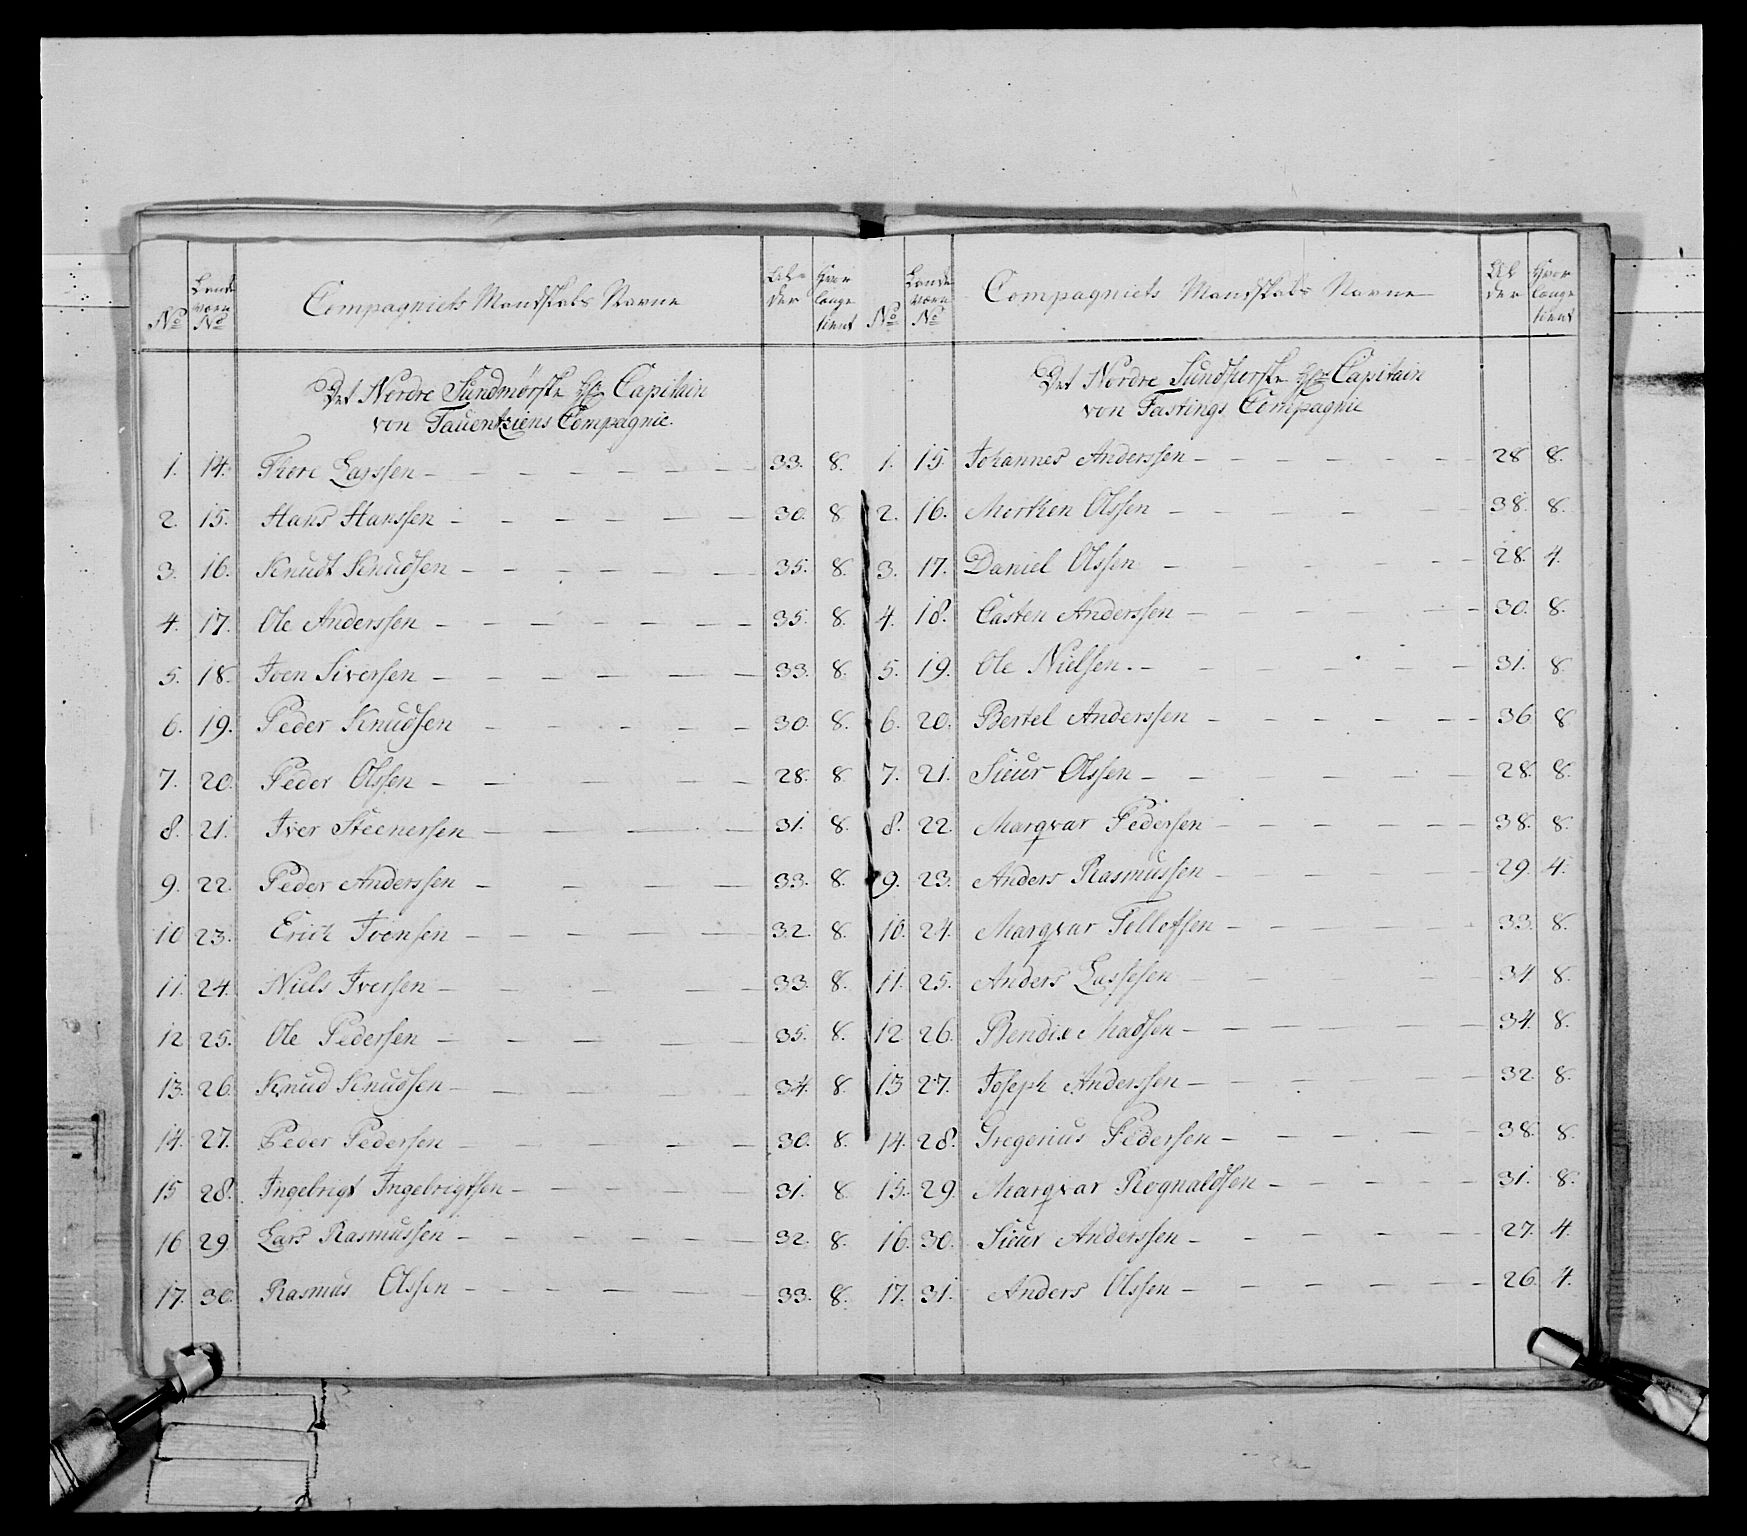 No
Land
værn
No
Compagniets Mandskabs Navne
Al-
der
Hvor
længe
tient
Det Nordre Sundmørske Hr Capitain
von Tauentziens Compagnie.
1. 14. Thore Larssen 33. 8.
2. 15. Hans Hanssen 30. 8
3. 16. Knudt Knudsen 35. 8.
4. 17. Ole Anderssen 35. 8.
5. 18. Joen Siversen 33. 8.
6. 19. Peder Knudsen 30. 8.
7. 20. Peder Olssen 28. 8
8. 21. Iver Steenersen 31. 8.
9. 22. Peder Anderssen 33. 8.
10 23. Erich Joensen 32. 8.
11. 24. Niels Iversen 33. 8.
12 25. Ole Pedersen 35. 8.
13. 26. Knud Knudsen 34. 8
14. 27. Peder Pedersen 30. 8.
15 28. Ingebrigt Ingebrigtsen 31. 8
16 29 Lars Rasmussen 32. 8.
17. 30. Rasmus Olssen 33. 8.
No
Lande
værn
No
Compagniets Mandskabs Navne
Al
der
Hvor
længe
tient
Det Nordre Hr Capitain
von Fastings Compagnie
1. 15. Johannes Anderssen 28 8.
2. 16. Morthen Olssen 38. 8.
3. 17. Daniel Olssen 28. 4.
4. 18. Casten Anderssen 30. 8.
5. 19. Ole Nielsen. 31. 8
6. 20. Bertel Anderssen 36 8
7. 21. Sieur Olssen 28. 8.
8. 22. Marqvar Pedersen 38. 8.
9. 23. Anders Rasmussen 29. 4.
10. 24. Marqvar Tellefsen 33. 8.
11. 25. Anders Lassesen 34 8.
12 26. Bendix Madsen 34. 8.
13 27. Joseph Anderssen 32. 8.
14. 28. Gregorius Pedersen 38. 8.
15. 29 Marqvar Rognaldsen 31. 8.
16. 30. Sieur Anderssen 27. 4.
17. 31. Anders Olssen 26. 4.